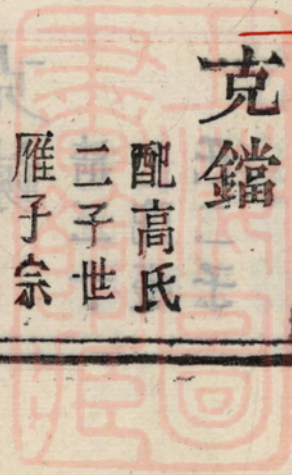 克鐺
配高氏
二子世
雁子宗